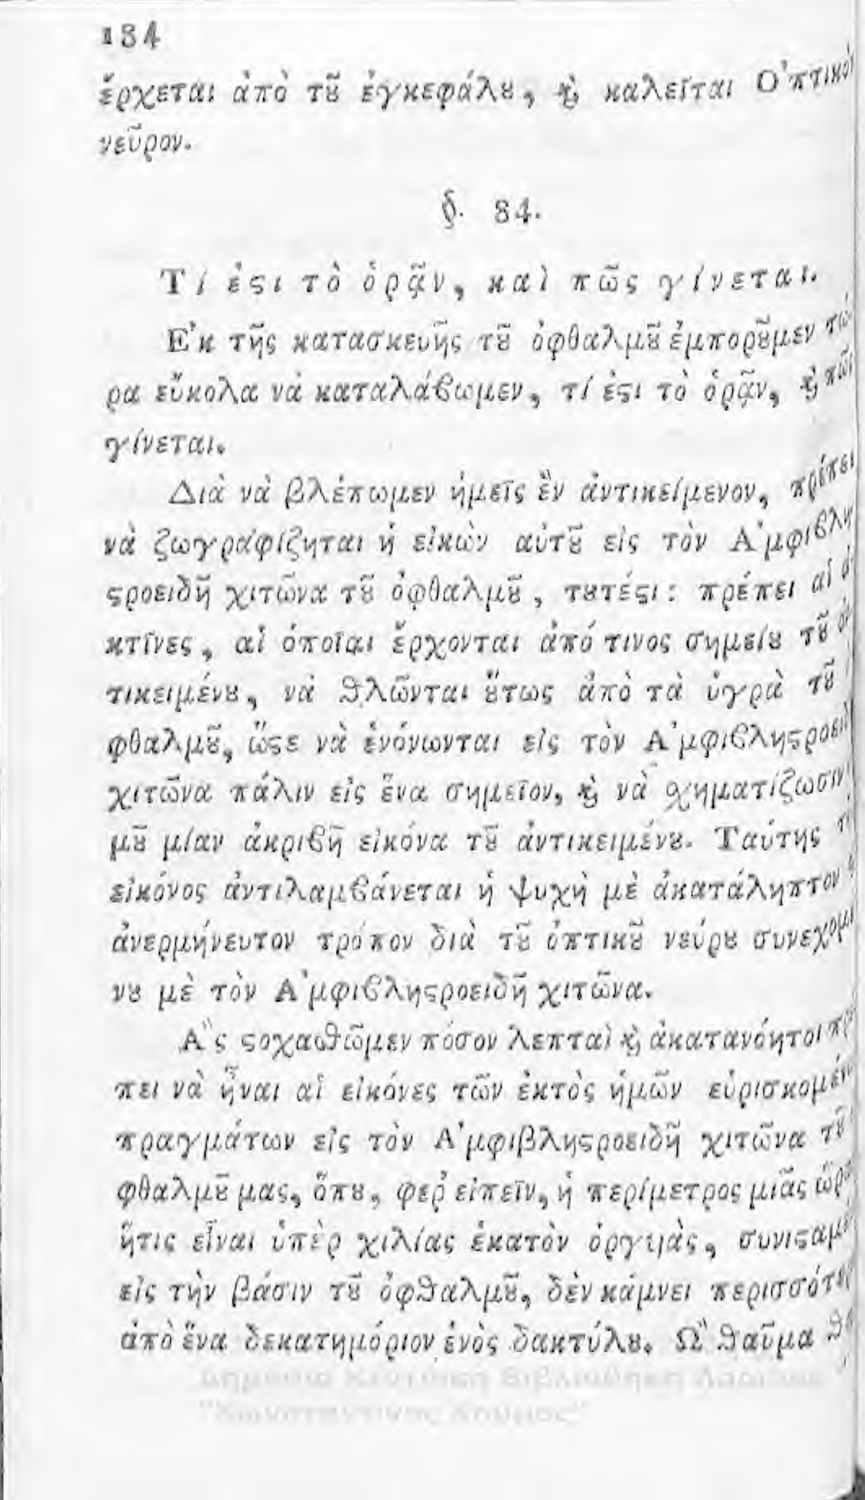 134
ἔρχεται ἀπὸ τȣ͂ ἐγκεφάλȣ, ϗ̀ καλεῖται Ὀπτικὸν
νεῦρον.
§. 84.
Τί ἐϛι τὸ ὁρᾷν, καὶ πῶς γίνεται.
Ἐκ τῆς κατασκευῆς τȣ͂ ὀφθαλμȣ͂ ἐμπορȣ͂μεν τώ
ρα εὔκολα νὰ καταλάβωμεν, τί ἐϛι τὸ ὁρᾷν, ϗ̀ πῶς
γίνεται.
Διὰ νὰ βλέπωμεν ἡμεῖς ἓν ἀντικείμενον, πρέπει
νὰ ζωγραφίζηται ἡ εἰκὼν αὐτȣ͂ εἰς τὸν Ἀμφιβλη
ϛροειδῆ χιτῶνα τȣ͂ ὀφθαλμȣ͂, τȣτέϛι: πρέπει αἱ ἀ
κτῖνες, αἱ ὁποῖαι ἔρχονται ἀπό τινος σημείȣ τȣ͂ ἀν
τικειμένȣ, νὰ θλῶνται ȣ̔́τως ἀπὸ τὰ ὑγρὰ τȣ͂
φθαλμȣ͂, ὥϛε νὰ ἑνόνωνται εἰς τὸν Ἀμφιβληϛροειδῆ
χιτῶνα πάλιν εἰς ἕνα σημεῖον, ϗ̀ νὰ σχηματίζωσιν
μȣ͂ μίαν ἀκριβῆ εἰκόνα τȣ͂ ἀντικειμένȣ. Ταύτης τῆς
εἰκόνος ἀντιλαμβάνεται ἡ ψυχὴ μὲ ἀκατάληπτον
ἀνερμήνευτον τρόπον διὰ τȣ͂ ὀπτικȣ͂ νεύρȣ συνεχομέ
νȣ μὲ τὸν Ἀμφιβληϛροειδῆ χιτῶνα.
Ἂς ϛοχασθῶμεν πόσον λεπταὶ ϗ̀ ἀκατανόητοι πρέ
πει νὰ ἦναι αἱ εἰκόνες τῶν ἐκτὸς ἡμῶν εὑρισκομένων
πραγμάτων εἰς τὸν Ἀμφιβληϛροειδῆ χιτῶνα τȣ͂
φθαλμȣ͂ μας, ὅπȣ, φερ' εἰπεῖν, ἡ περίμετρος μιᾶς ὥρας
ἥτις εἶναι ὑπὲρ χιλίας ἑκατὸν ὀργυιὰς, συνιϛαμέ
εἰς τὴν βάσιν τȣ͂ ὀφθαλμȣ͂, δὲν κάμνει περισσότε
ἀπὸ ἕνα δεκατημόριον ἑνὸς δακτύλȣ. Ὢ θαῦμα
Δημόσια Κεντρική Βιβλιοθήκη Λάρισας
"Κωνσταντίνος Κούμας"